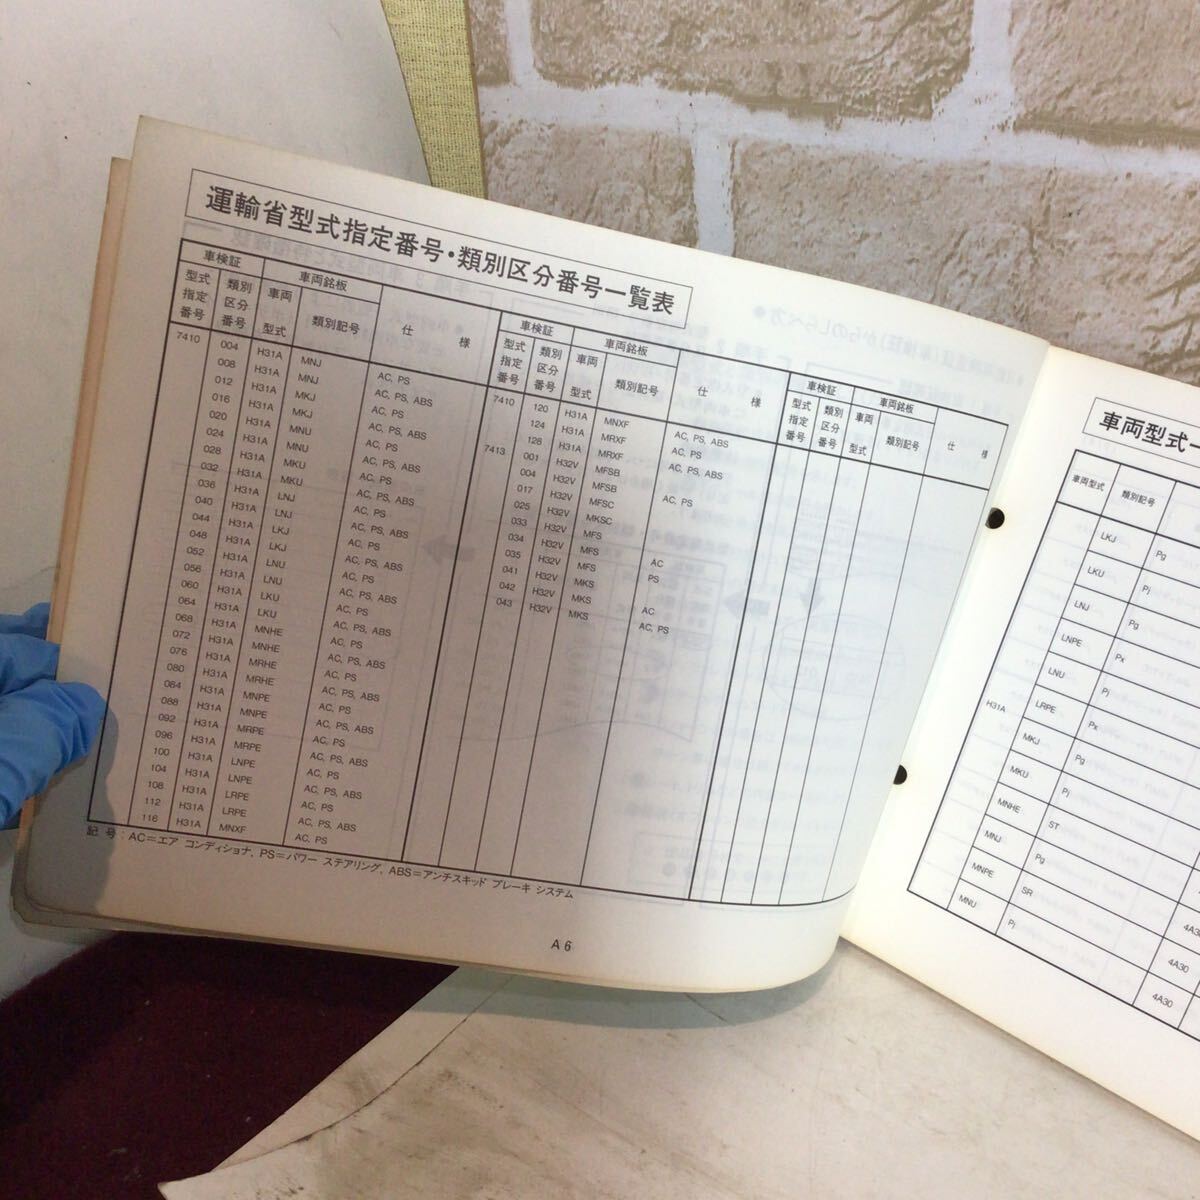 運輸省型式指定番号・類別区分番号一覧表
車検証 車両銘板 仕様
型式指定番号 類別区分番号 車両型式 類別記号
7410 004 H31A MNJ AC, PS
008 H31A MNJ AC, PS, ABS
012 H31A MKJ AC, PS
016 H31A MKJ AC, PS, ABS
020 H31A MNU AC, PS
024 H31A MNU AC, PS, ABS
028 H31A MKU AC, PS
032 H31A MKU AC, PS, ABS
036 H31A LNJ AC, PS
040 H31A LNJ AC, PS, ABS
044 H31A LKJ AC, PS
048 H31A LKJ AC, PS, ABS
052 H31A LNU AC, PS
056 H31A LNU AC, PS, ABS
060 H31A LKU AC, PS
064 H31A LKU AC, PS, ABS
068 H31A MNHE AC, PS
072 H31A MNHE AC, PS, ABS
076 H31A MRHE AC, PS
080 H31A MRHE AC, PS, ABS
084 H31A MNPE AC, PS
088 H31A MNPE AC, PS, ABS
092 H31A MRPE AC, PS
096 H31A MRPE AC, PS, ABS
100 H31A LNPE AC, PS
104 H31A LNPE AC, PS, ABS
108 H31A LRPE AC, PS
112 H31A LRPE AC, PS, ABS
116 H31A MNXF AC, PS
車検証 車両銘板 仕様
型式指定番号 類別区分番号 車両型式 類別記号
7410 120 H31A MNXF AC, PS, ABS
124 H31A MRXF AC, PS
128 H31A MRXF AC, PS, ABS
7413 001 H32V MFSB
004 H32V MFSB AC, PS
017 H32V MFSC
025 H32V MKSC
033 H32V MFS
034 H32V MFS AC
035 H32V MFS PS
041 H32V MKS
042 H32V MKS AC
043 H32V MKS AC, PS
車検証 車両銘板 仕様
型式指定番号 類別区分番号 車両型式 類別記号
記号：AC＝エア コンディショナ, PS＝パワー ステアリング, ABS＝アンチスキッド ブレーキ システム
A 6
車両型式
車両型式 類別記号
H31A
LKJ Pg
LKU Pj
LNJ Pg
LNPE Px
LNU Pj
LRPE Px
MKJ Pg
MKU Pj
MNHE ST
MNJ Pg
MNPE SR 4A30
MNU Pj 4A30
4A30